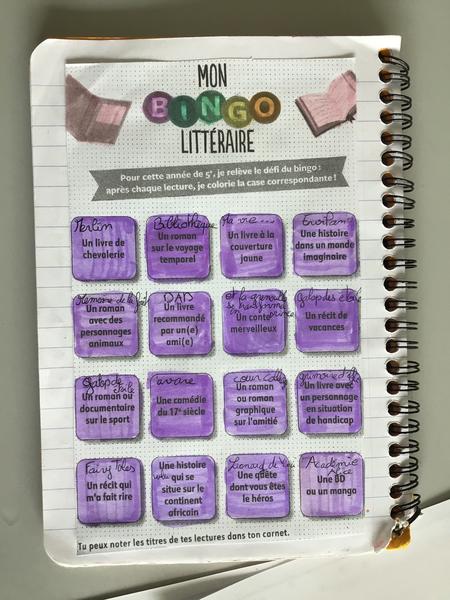 MON
BINGO
LITTÉRAIRE
Pour cette année de 5e, je relève le défi du bingo :
après chaque lecture, je colorie la case correspondante !
Merlin
Un livre de
chevalerie
Bibliothèque
Un roman
sur le voyage
temporel
Ma vie ...
Un livre à la
couverture
jaune
Une histoire
dans un monde
imaginaire
Un roman
avec des
personnages
animaux
DAD
Un livre
recommandé
par un(e)
ami(e)
et la grenouille
se
prince
Un conte
merveilleux
galop des
Un récit de
vacances
galop de
Un roman ou
documentaire
sur le sport
avare
Une comédie
du 17e siècle
cœur collège
Un roman
ou roman
graphique
sur l'amitié
Un livre avec
un personnage
en situation
de handicap
Fairy Tales
Un récit qui
m'a fait rire
Une histoire
qui se
situe sur le
continent
africain
Léonard de Vinci
Une quête
dont vous êtes
le héros
Académie
Une BD
ou un manga
Tu peux noter les titres de tes lectures dans ton carnet.